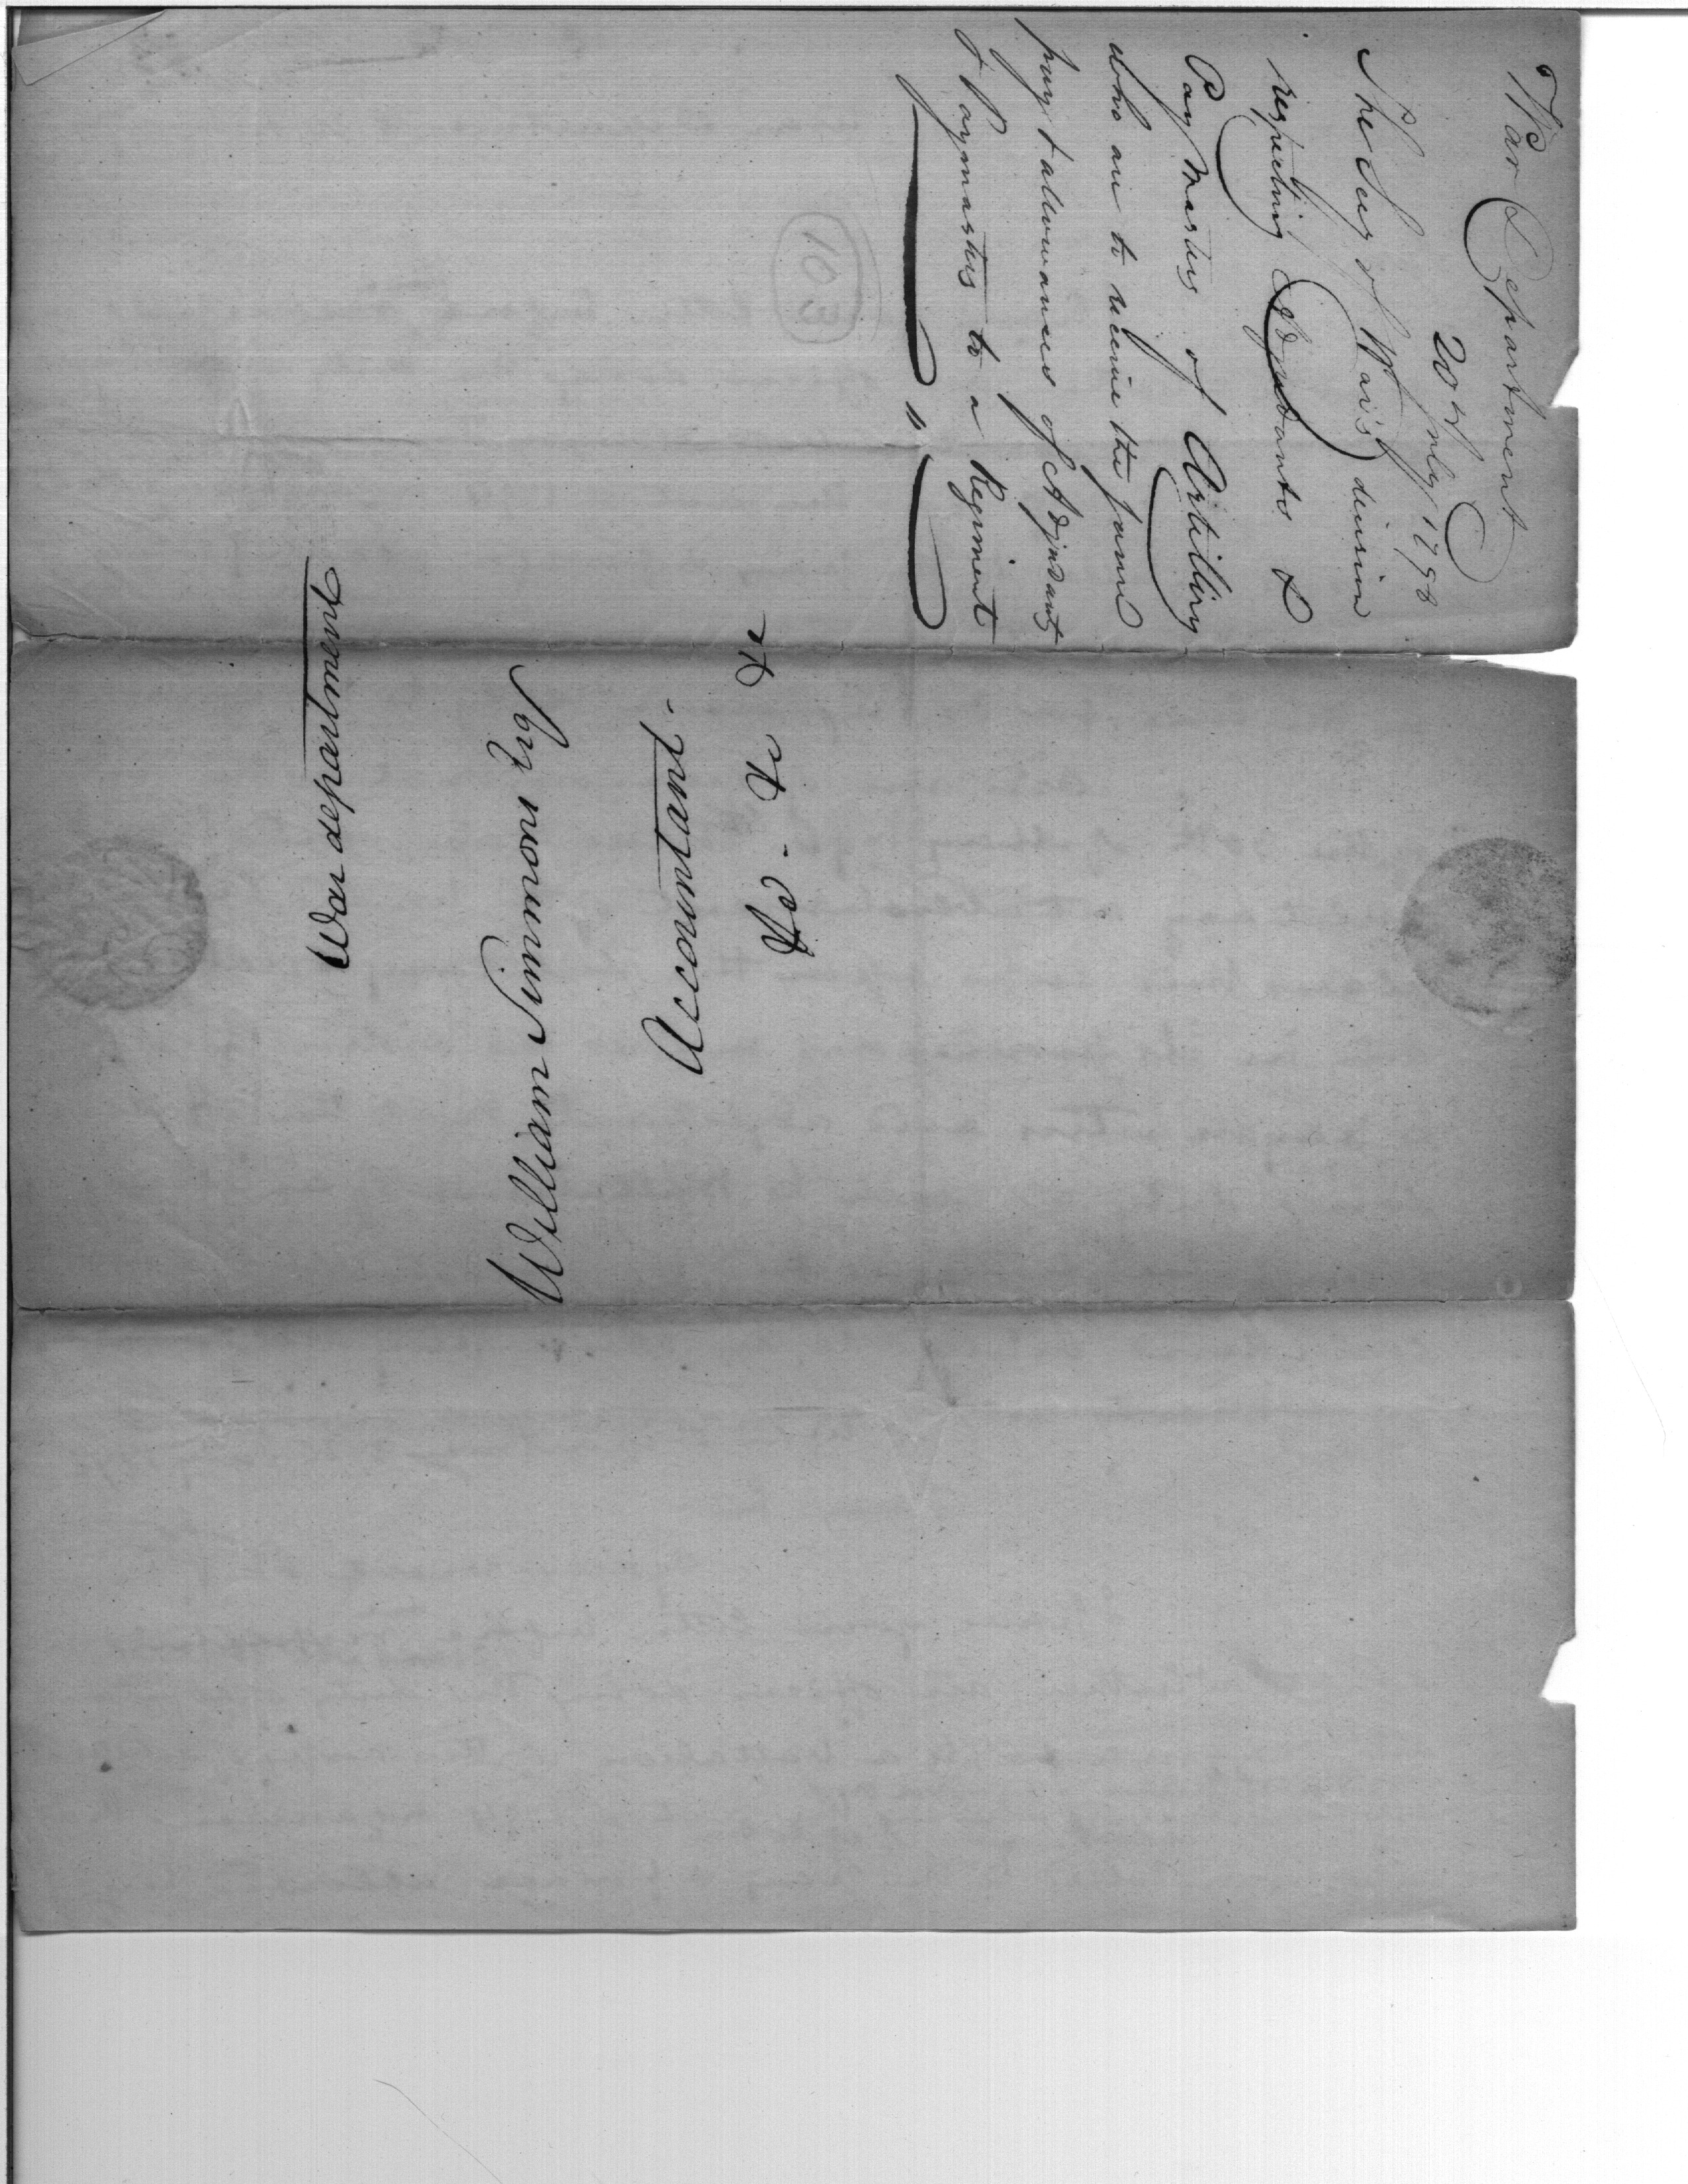 War Department
20 July 1798
The Secy of War's decision
respecting Adjutants &
PayMasters of Artillery
who are to receive the same
pay & allowances of Adjutants
& Paymasters to a Regiment
103
War department
William Simmons Esqr
Accountant.
&c. &c &c